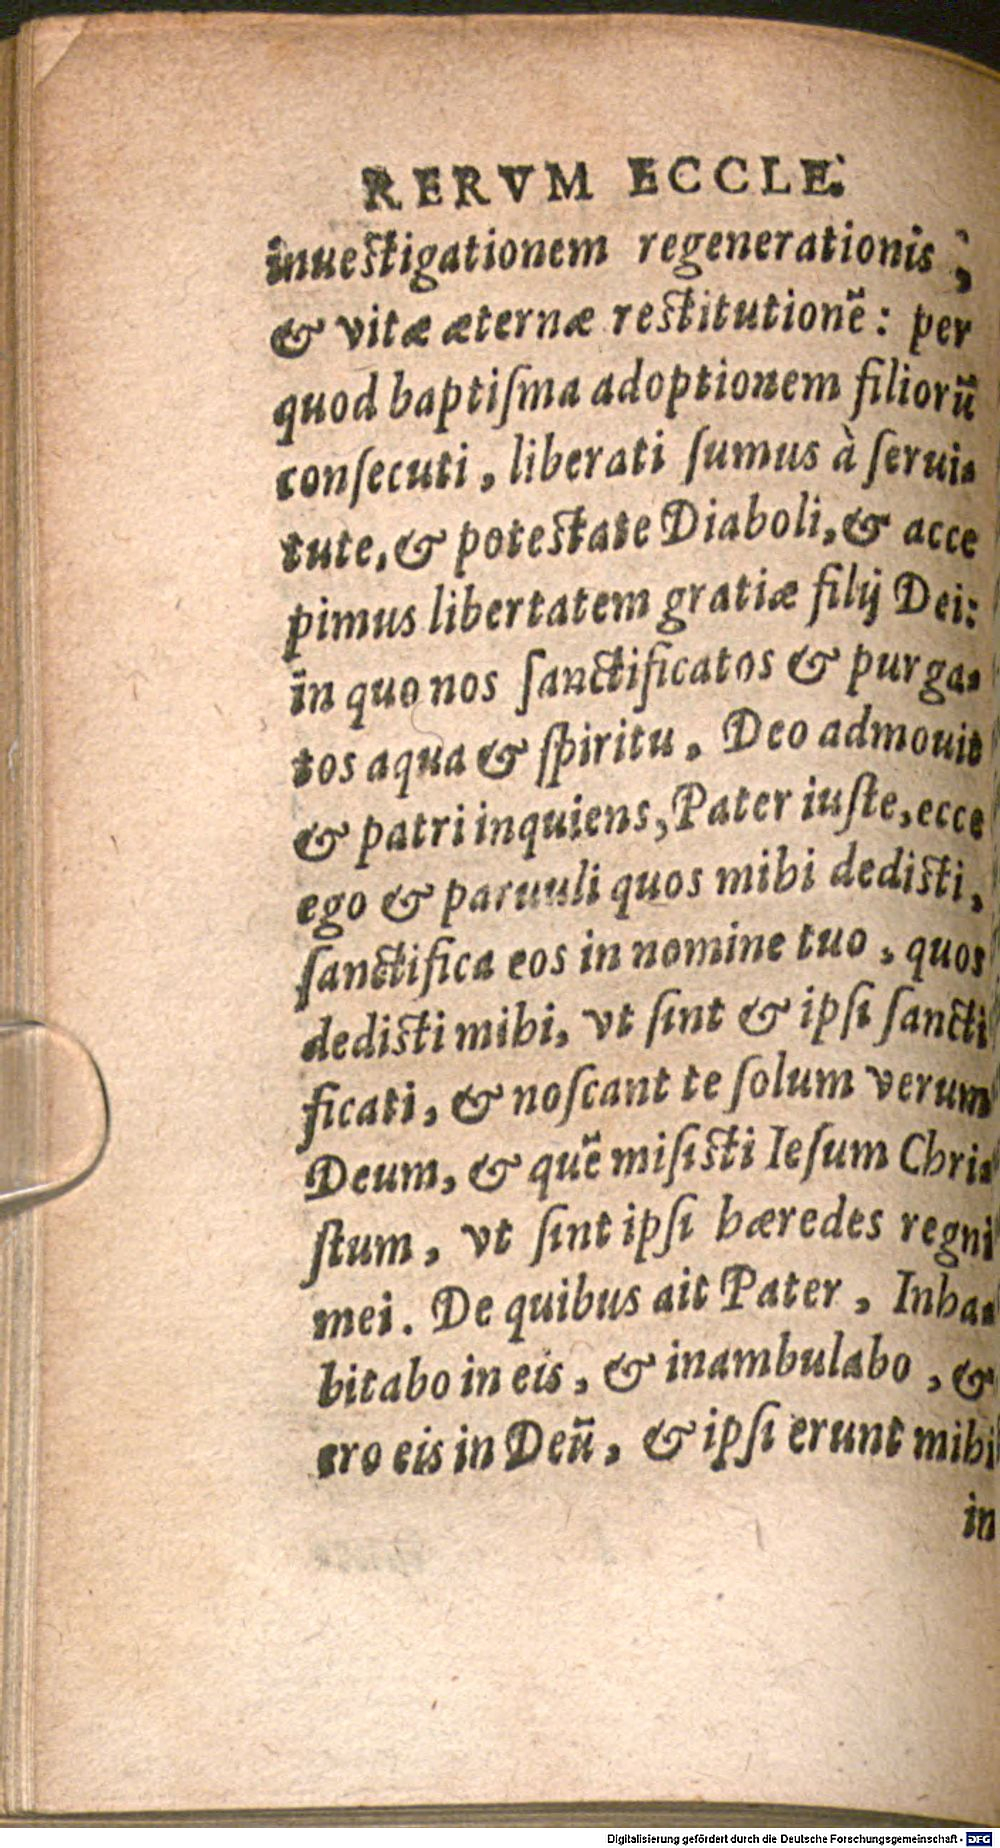 RERVM ECCLE.
inuestigationem regenerationis,
& vitæ æternæ restitutionẽ: per
quod baptiſma adoptionem filiorũ
conſecuti, liberati ſumus à ſerui-
tute, & potestate Diaboli, & acce
pimus libertatem gratiæ filij Dei:
in quo nos ſanctificatos & purga-
tos aqua & ſpiritu, Deo admouit
& patri inquiens, Pater iuſte, ecce
ego & paruuli quos mihi dedisti,
ſanctifica eos in nomine tuo, quos
dedisti mihi, vt ſint & ipſi ſancti
ficati, & noſcant te ſolum verum
Deum, & quẽ miſisti Ieſum Chri-
ſtum, vt ſint ipſi hæredes regni
mei. De quibus ait Pater, Inha-
bitabo in eis, & inambulabo, &
ero eis in Deũ, & ipſi erunt mihi
in
Digitalisierung gefördert durch die Deutsche Forschungsgemeinschaft - DFG